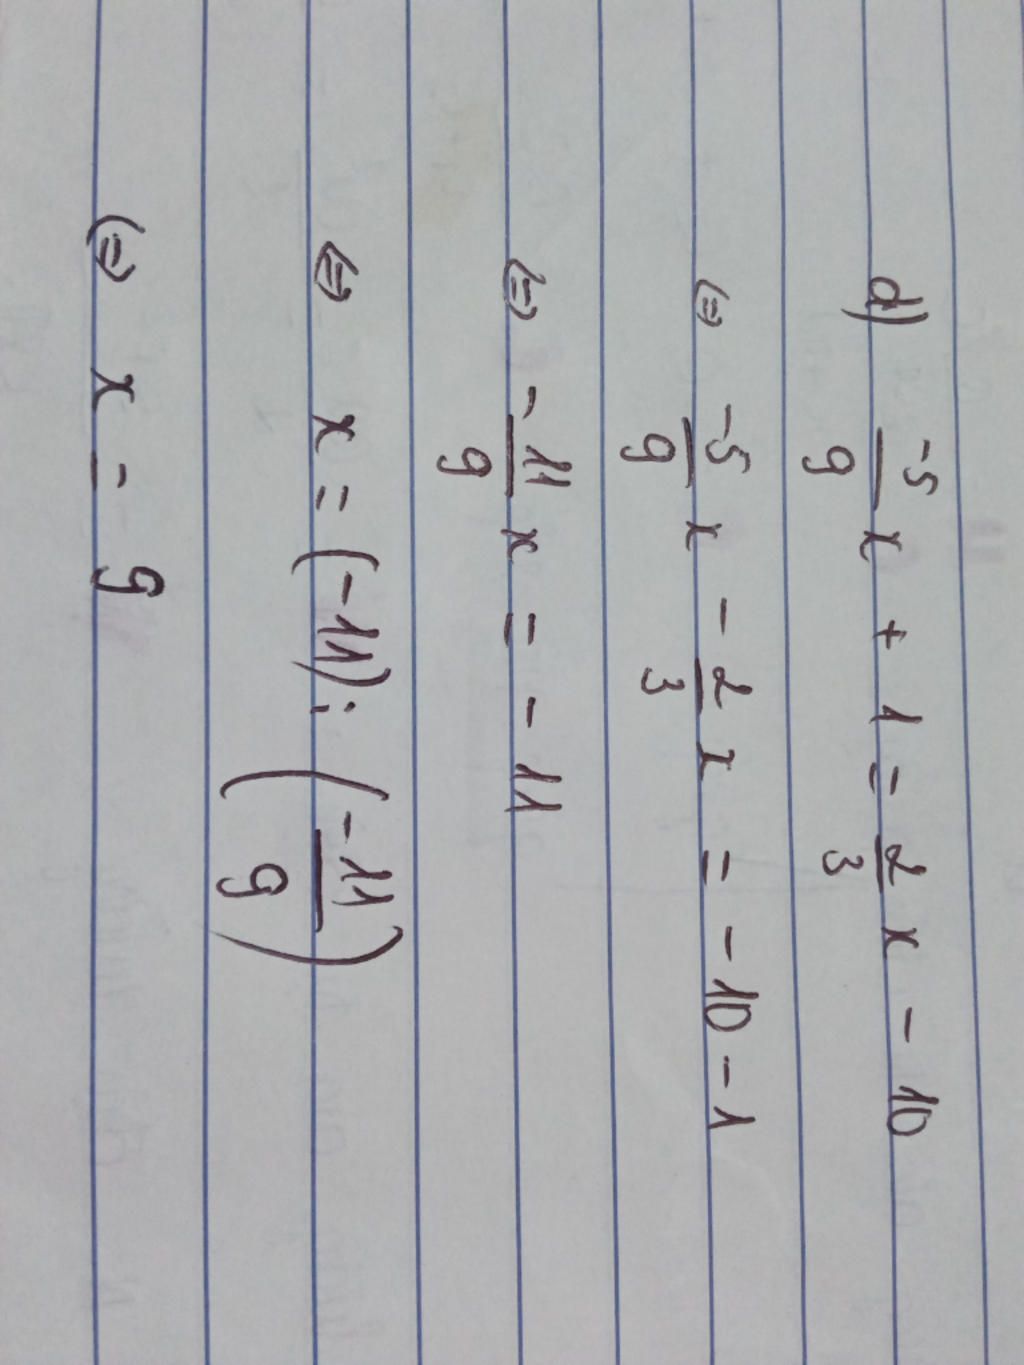 d) -5/9 x + 1 = 2/3 x - 10
(=) -5/9 x - 2/3 x = -10 - 1
(=) -11/9 x = -11
(=) x = (-11) : (-11/9)
(=) x = 9